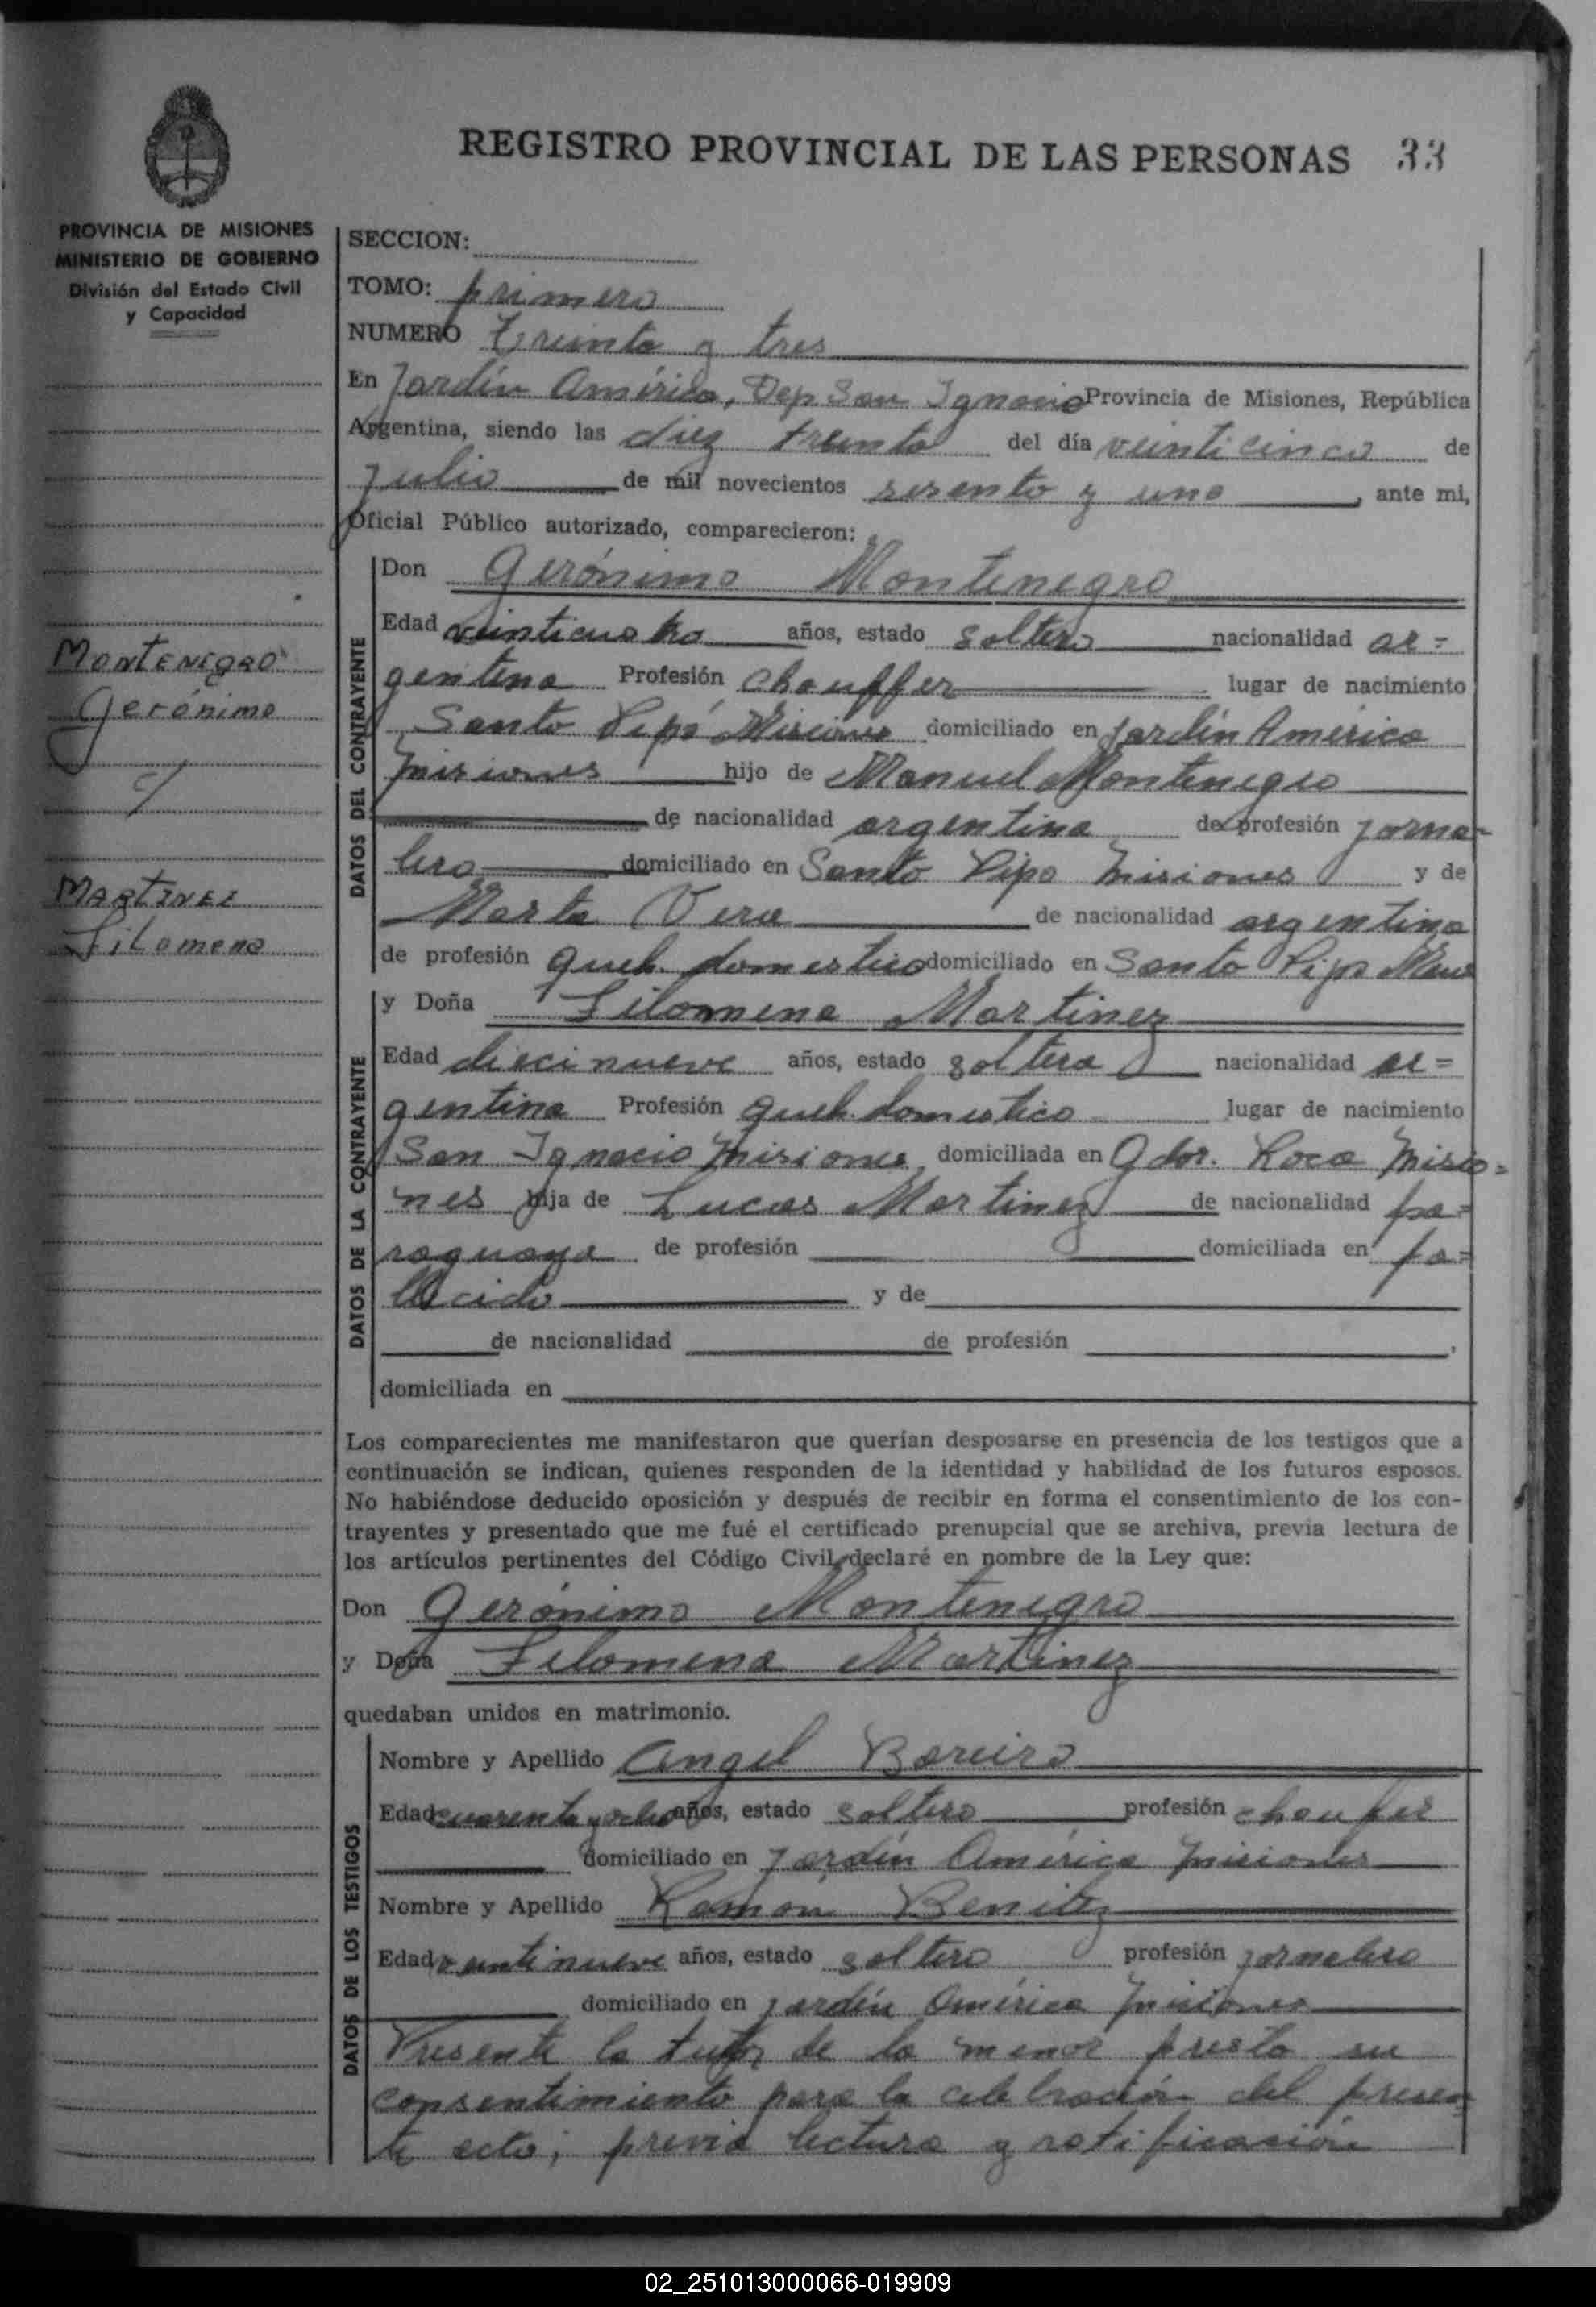 REGISTRO PROVINCIAL DE LAS PERSONAS 33
PROVINCIA DE MISIONES
MINISTERIO DE GOBIERNO
División del Estado Civil
y Capacidad
MONTENEGRO
Gerónimo
c/
MARTINEZ
Filomena
SECCION:
TOMO: primero
NUMERO Treinta y tres
En Jardín América, Dep San Ignacio Provincia de Misiones, República
Argentina, siendo las diez treinta del día veinticinco de
Julio de mil novecientos sesenta y uno, ante mi,
Oficial Público autorizado, comparecieron:
DATOS DEL CONTRAYENTE
Don Gerónimo Montenegro
Edad veinticuatro años, estado soltero nacionalidad ar=
gentina Profesión chouffer lugar de nacimiento
Santo Pipó Misiones domiciliado en Jardín América
Misiones hijo de Manuel Montenegro
de nacionalidad argentina de profesión jorna-
lero domiciliado en Santo Pipo Misiones y de
Marta Vera de nacionalidad argentina
de profesión queh. domestico domiciliado en Santo Pipo
DATOS DE LA CONTRAYENTE
y Doña Filomena Martinez
Edad diecinueve años, estado soltera nacionalidad ar=
gentina Profesión queh. domestico lugar de nacimiento
San Ignacio Misiones domiciliada en Gdor. Roca Misio=
nes hija de Lucas Martinez de nacionalidad pa=
raguaya de profesión domiciliada en fa=
llecido y de
de nacionalidad de profesión
domiciliada en
Los comparecientes me manifestaron que querían desposarse en presencia de los testigos que a
continuación se indican, quienes responden de la identidad y habilidad de los futuros esposos.
No habiéndose deducido oposición y después de recibir en forma el consentimiento de los con-
trayentes y presentado que me fué el certificado prenupcial que se archiva, previa lectura de
los artículos pertinentes del Código Civil, declaré en nombre de la Ley que:
Don Gerónimo Montenegro
y Doña Filomena Martinez
quedaban unidos en matrimonio.
DATOS DE LOS TESTIGOS
Nombre y Apellido Angel Bareiro
Edad cuarenta y ocho años, estado soltero profesión choufer
domiciliado en Jardín América Misiones
Nombre y Apellido Ramón Benitez
Edad veintinueve años, estado soltero profesión jornalero
domiciliado en Jardín América Misiones
Presente la tutor de la menor presta su
consentimiento para la celebración del presen=
te acto; previa lectura y ratificación
02_251013000066-019909